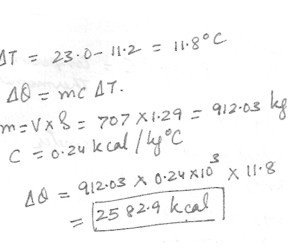 ΔT = 23.0 - 11.2 = 11.8°C
ΔQ = mc ΔT.
m = V x S = 707 X 1.29 = 912.03 kg
C = 0.24 kcal / kg°C
ΔQ = 912.03 X 0.24 X 10³ X 11.8
= 2582.9 kcal